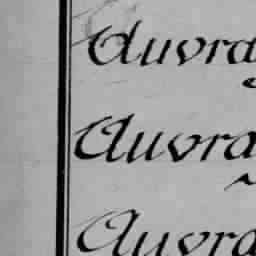 Auvra
Auvra
Auvra